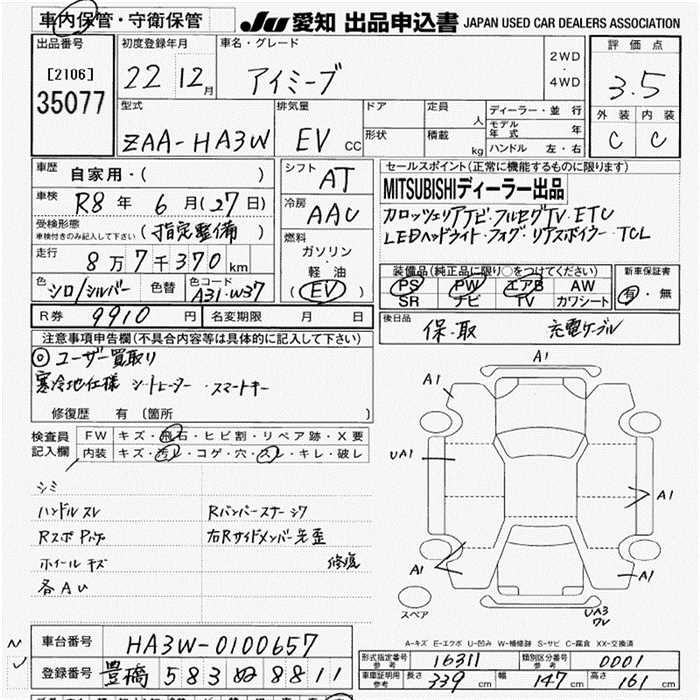 車内保管・守衛保管
JU 愛知 出品申込書 JAPAN USED CAR DEALERS ASSOCIATION
出品番号
[2106]
35077
初度登録年月
22 12月
車名・グレード
アイミーブ
2WD
・
4WD
評価点
3.5
外装 内装
C C
型式
ZAA-HA3W
排気量
EV CC
ドア
形状
定員 人
積載 kg
ディーラー・並行
モデル年式 年
ハンドル 左・右
車歴
自家用・( )
車検
R8年 6月(27日)
受検形態
車検付きのみ記入して下さい
(指定整備)
走行
8万7千370km
色
シロ/シルバー
色替
色コード
A31・W37
シフト
AT
冷房
AAC
燃料
ガソリン
・
軽油
(EV)
セールスポイント(正常に機能するものに限ります)
MITSUBISHIディーラー出品
カロッツェリアナビ・フルセグTV・ETC
LEDヘッドライト・フォグ・リアスポイラー・TCL
装備品(純正品に限り○をつけてください)
PS PW エアB AW
SR ナビ TV カワシート
新車保証書
有・無
R券 9910円
名変期限 月 日
後日品
保・取 充電ケーブル
注意事項申告欄(不具合内容等は具体的に記入して下さい)
◎ユーザー買取り
寒冷地仕様 シートヒーター ・スマートキー
修復歴 有(箇所 )
検査員
記入欄
FW キズ・飛石・ヒビ割・リペア跡・X要
内装 キズ・汚レ・コゲ・穴・スレ・キレ・破レ
シミ
ハンドルスレ
ホイールキズ
各AU
右Rサイドメンバー先歪
修復
A1
A1
UA1
A1
A1
A1
UA3
スペア
A-キズ E-エクボ U-凹み W-補修跡 S-サビ C-腐食 XX-交換済
車台番号
HA3W-0100657
登録番号
豊橋 583 ぬ 8811
形式指定番号
参考
16311
類別区分番号
参考
0001
車庫証明用
参考
長さ 339cm
幅 147cm
高さ 161cm